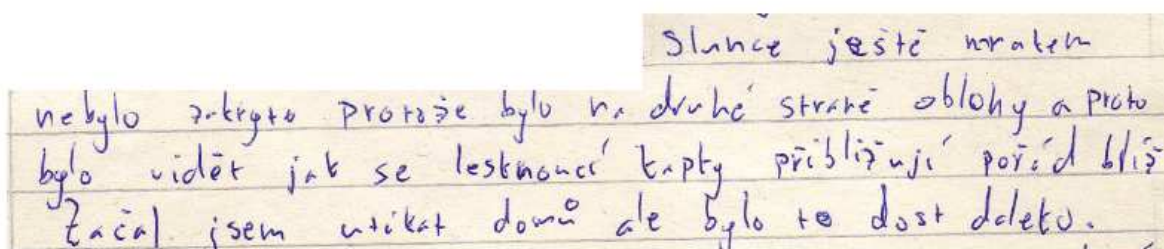 Slunce ještě mrakem
nebylo zakryto protože bylo na druhé straně oblohy a proto
bylo vidět jak se lesknoucí kapky přibližují pořád blíž
Začal jsem utíkat domů ale bylo to dost daleko.